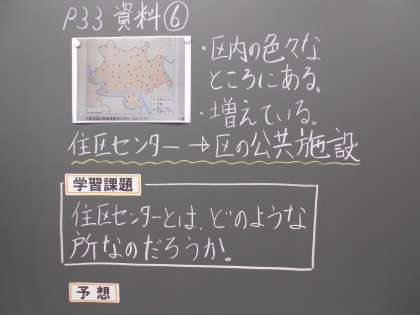 P33 資料⑥
・区内の色々な
ところにある。
・増えている。
住区センター→区の公共施設
学習課題
住区センターとは、どのような
所なのだろうか。
予想